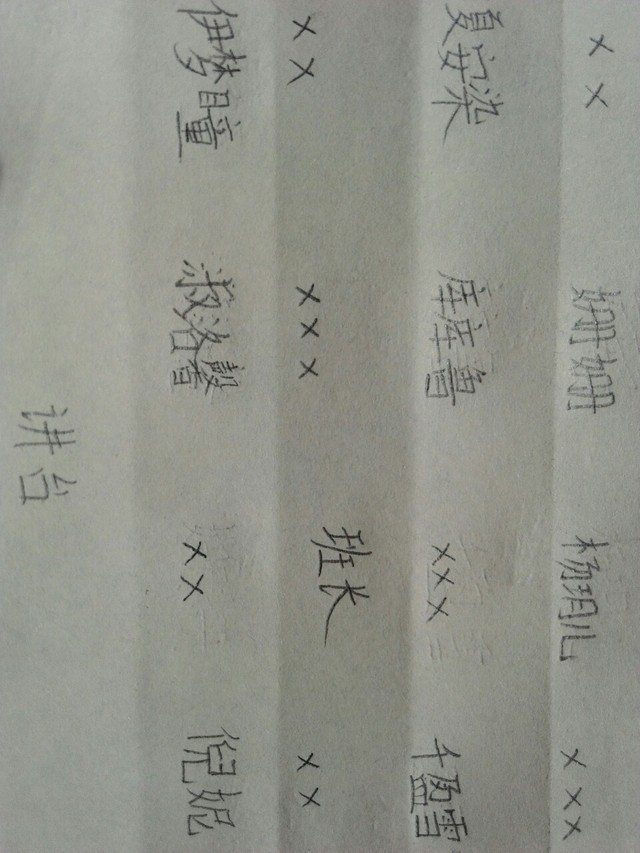 ×× 姗姗 杨玥儿 ×××
夏安染 库库鲁 ××× 千盈雪
×× ××× 班长 ××
伊梦瞳 淑洛馨 ×× 倪妮
讲台